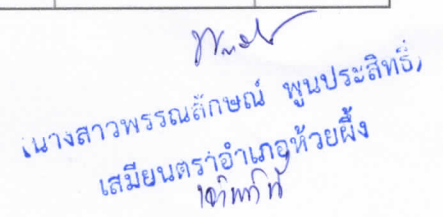 (นางสาวพรรณลักษณ์ พูนประสิทธิ์)
เสมียนตราอำเภอห้วยผึ้ง